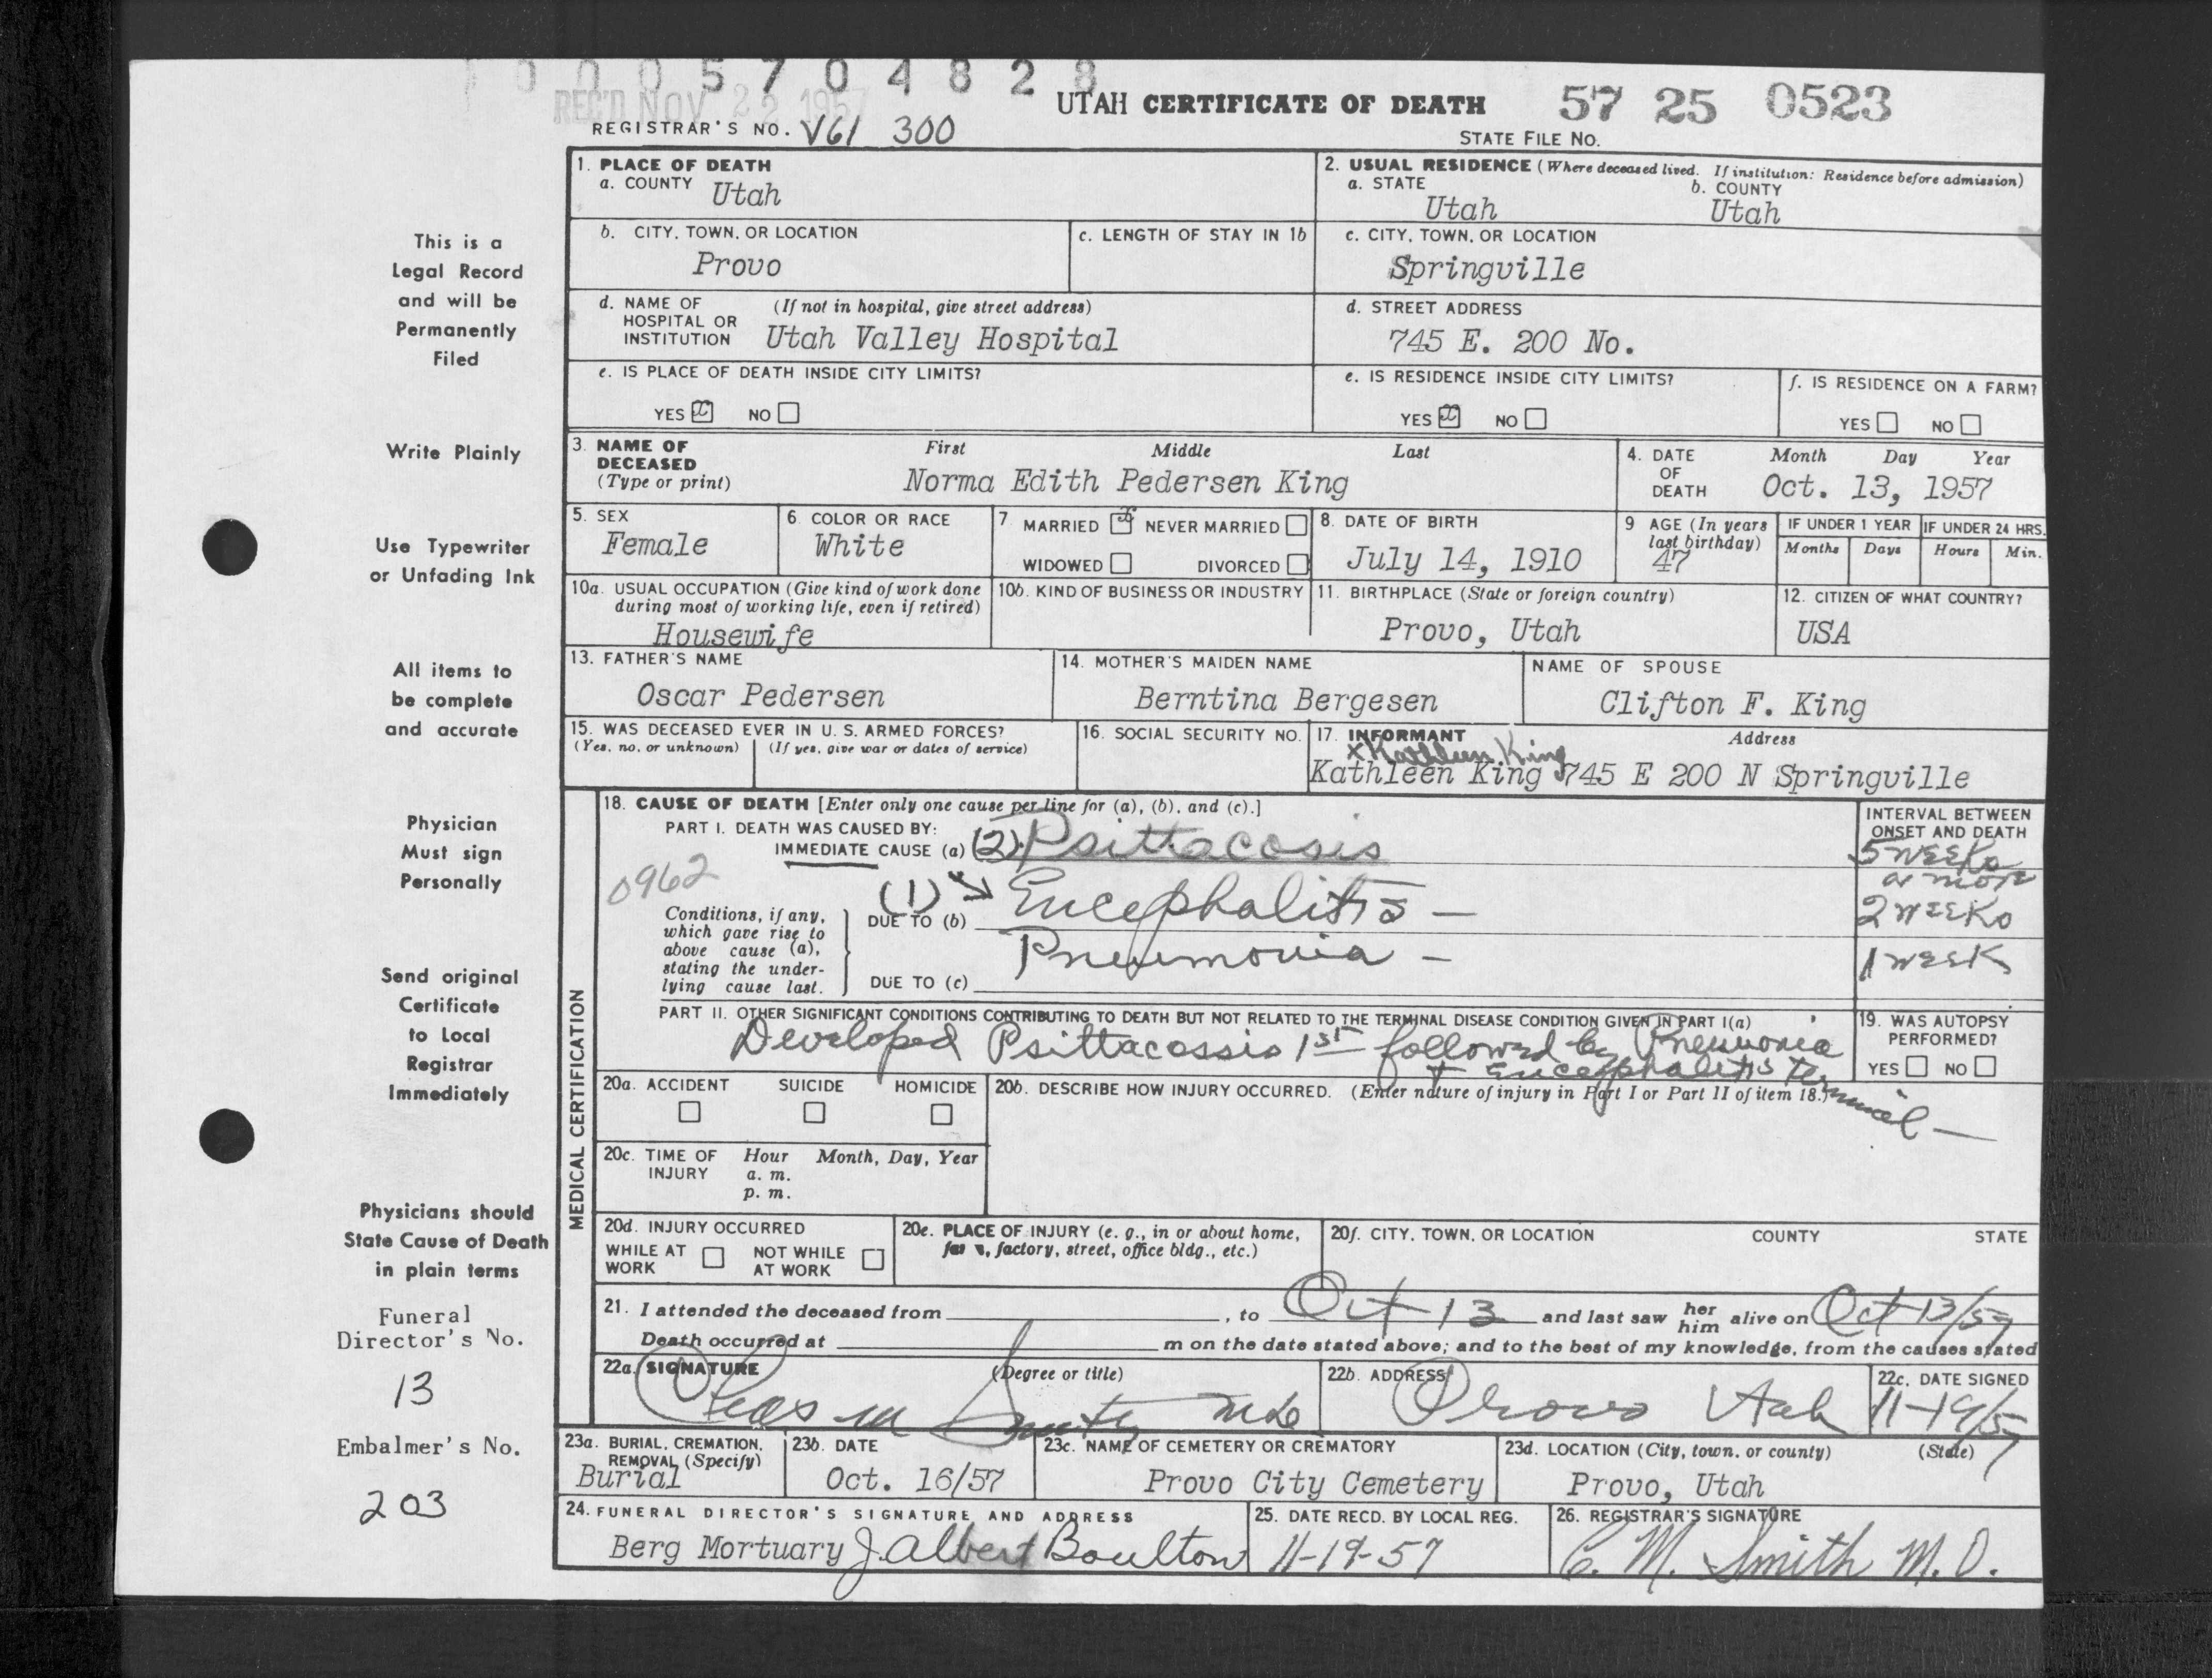 0 0 0 5 7 0 4 8 2 8
REC'D NOV 22 1957
UTAH CERTIFICATE OF DEATH 57 25 0523
REGISTRAR'S NO. V61 300
STATE FILE NO.
This is a
Legal Record
and will be
Permanently
Filed
Write Plainly
Use Typewriter
or Unfading Ink
All items to
be complete
and accurate
Physician
Must sign
Personally
Send original
Certificate
to Local
Registrar
Immediately
Physicians should
State Cause of Death
in plain terms
Funeral
Director's No.
13
Embalmer's No.
203
1. PLACE OF DEATH
a. COUNTY Utah
2. USUAL RESIDENCE (Where deceased lived. If institution: Residence before admission)
a. STATE Utah
b. COUNTY Utah
b. CITY, TOWN, OR LOCATION
Provo
c. LENGTH OF STAY IN 1b
c. CITY, TOWN, OR LOCATION
Springville
d. NAME OF (If not in hospital, give street address)
HOSPITAL OR
INSTITUTION Utah Valley Hospital
d. STREET ADDRESS
745 E. 200 No.
e. IS PLACE OF DEATH INSIDE CITY LIMITS?
YES x NO
e. IS RESIDENCE INSIDE CITY LIMITS?
YES x NO
f. IS RESIDENCE ON A FARM?
YES NO
3. NAME OF First Middle Last
DECEASED
(Type or print) Norma Edith Pedersen King
4. DATE Month Day Year
OF
DEATH Oct. 13, 1957
5. SEX
Female
6. COLOR OR RACE
White
7 MARRIED x NEVER MARRIED
WIDOWED DIVORCED
8. DATE OF BIRTH
July 14, 1910
9 AGE (In years
last birthday)
47
IF UNDER 1 YEAR IF UNDER 24 HRS.
Months Days Hours Min.
10a. USUAL OCCUPATION (Give kind of work done
during most of working life, even if retired)
Housewife
10b. KIND OF BUSINESS OR INDUSTRY
11. BIRTHPLACE (State or foreign country)
Provo, Utah
12. CITIZEN OF WHAT COUNTRY?
USA
13. FATHER'S NAME
Oscar Pedersen
14. MOTHER'S MAIDEN NAME
Berntina Bergesen
NAME OF SPOUSE
Clifton F. King
15. WAS DECEASED EVER IN U. S. ARMED FORCES?
(Yes, no, or unknown) (If yes, give war or dates of service)
16. SOCIAL SECURITY NO.
17. INFORMANT Address
x Kathleen King
Kathleen King 745 E 200 N Springville
MEDICAL CERTIFICATION
18. CAUSE OF DEATH [Enter only one cause per line for (a), (b), and (c).]
PART I. DEATH WAS CAUSED BY:
IMMEDIATE CAUSE (a) (2) Psittacosis
INTERVAL BETWEEN
ONSET AND DEATH
5 weeks
or more
0962
Conditions, if any,
which gave rise to
above cause (a),
stating the under-
lying cause last.
(1) → Encephalitis –
DUE TO (b)
2 weeks
Pneumonia –
DUE TO (c)
1 week
PART II. OTHER SIGNIFICANT CONDITIONS CONTRIBUTING TO DEATH BUT NOT RELATED TO THE TERMINAL DISEASE CONDITION GIVEN IN PART I(a)
Developed Psittacossis 1st followed by Pneumonia
+ Encephalitis terminal –
19. WAS AUTOPSY
PERFORMED?
YES NO
20a. ACCIDENT SUICIDE HOMICIDE
20b. DESCRIBE HOW INJURY OCCURRED. (Enter nature of injury in Part I or Part II of item 18.)
20c. TIME OF Hour Month, Day, Year
INJURY a. m.
p. m.
20d. INJURY OCCURRED
WHILE AT NOT WHILE
WORK AT WORK
20e. PLACE OF INJURY (e. g., in or about home,
farm, factory, street, office bldg., etc.)
20f. CITY, TOWN, OR LOCATION COUNTY STATE
21. I attended the deceased from , to Oct 13 and last saw her him alive on Oct 13/57
Death occurred at m on the date stated above; and to the best of my knowledge, from the causes stated
22a. SIGNATURE (Degree or title)
Chas M Smith MD
22b. ADDRESS
Provo Utah
22c. DATE SIGNED
11-19/57
23a. BURIAL, CREMATION,
REMOVAL (Specify)
Burial
23b. DATE
Oct. 16/57
23c. NAME OF CEMETERY OR CREMATORY
Provo City Cemetery
23d. LOCATION (City, town, or county) (State)
Provo, Utah
24. FUNERAL DIRECTOR'S SIGNATURE AND ADDRESS
Berg Mortuary J. Albert Boulton
25. DATE RECD. BY LOCAL REG.
11-19-57
26. REGISTRAR'S SIGNATURE
C. M. Smith M. D.